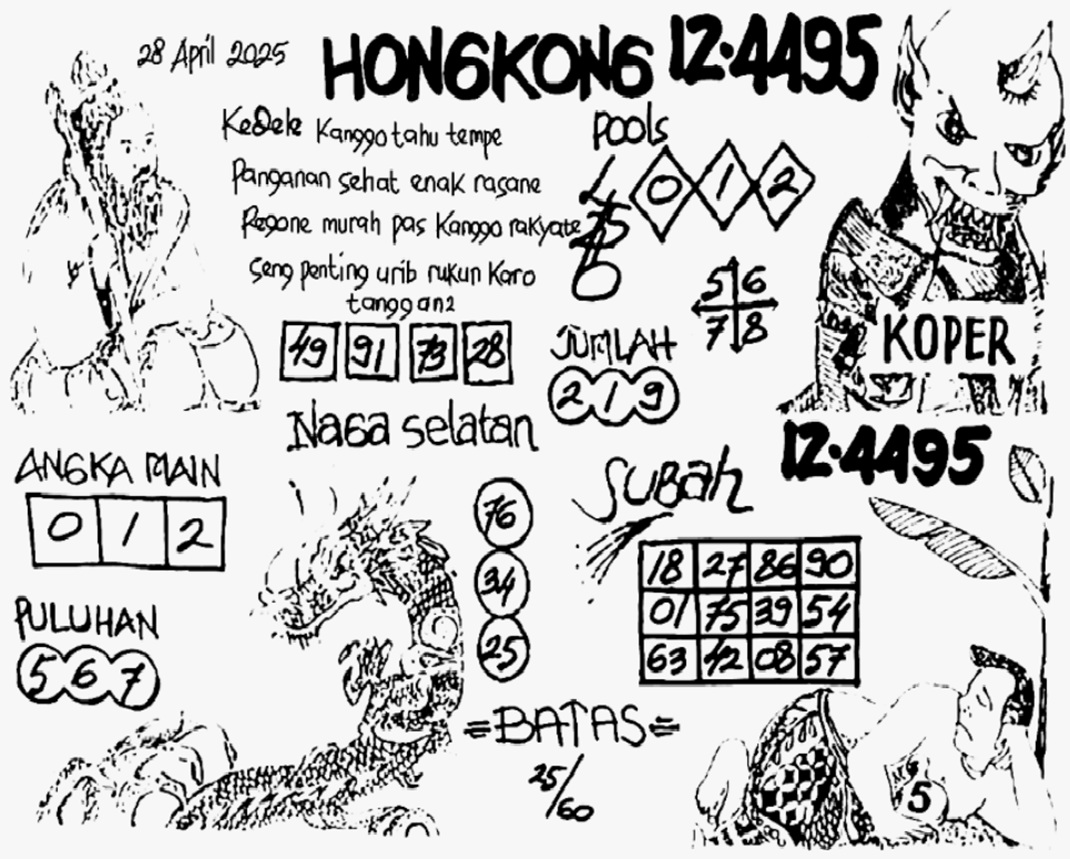 28 April 2025
HONGKONG 12.4495
Kedele Kanggo tahu tempe
Panganan sehat enak rasane
Regone murah pas Kanggo rakyate
Seng penting urib rukun Karo
tanggan2
49 91 73 28
POOLS
0 1 2
5 6
7 8
JUMLAH
2 1 9
KOPER
12.4495
Naga selatan
ANGKA MAIN
0 1 2
PULUHAN
5 6 7
76
34
25
=BATAS=
25/60
SUBAH
18 27 86 90
01 75 39 54
63 42 08 57
5